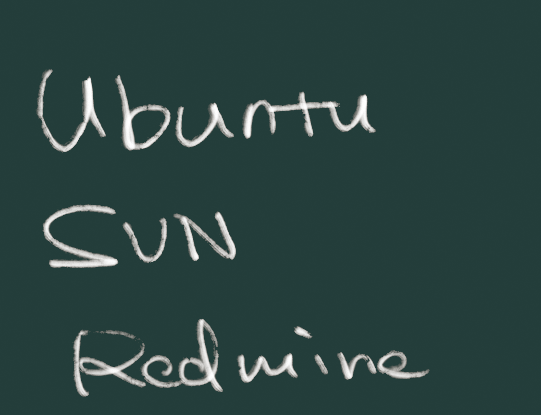 Ubuntu
SUN
Redmine